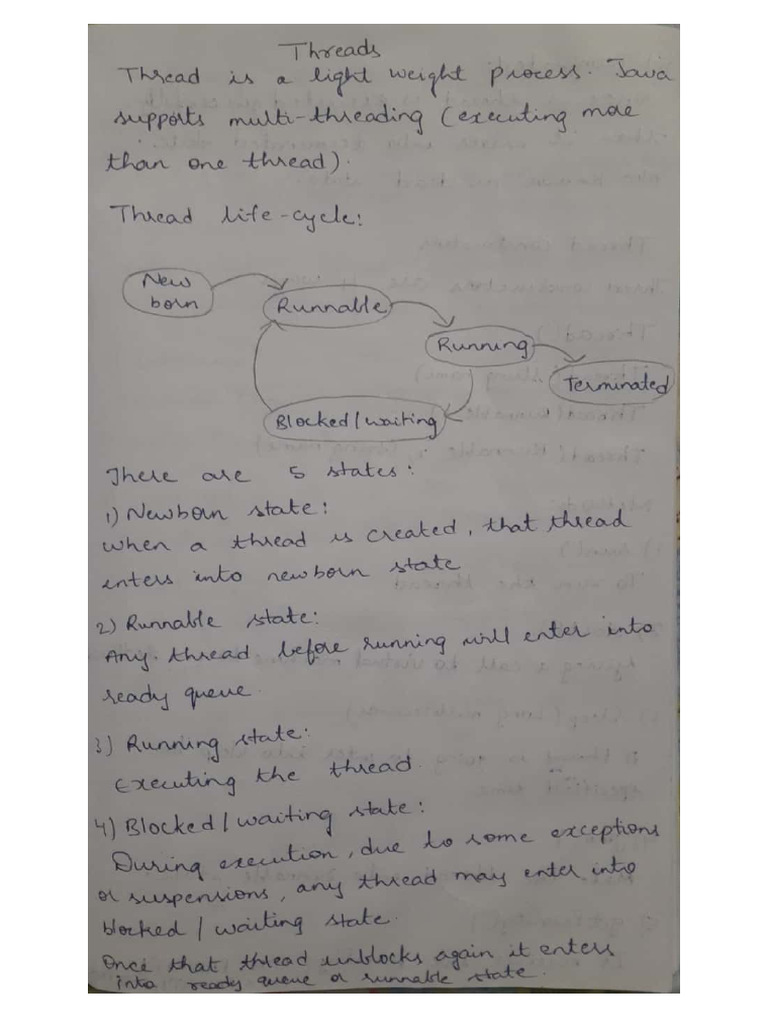 Threads
Thread is a light weight process. Java
supports multi-threading (executing more
than one thread).
Thread life-cycle:
New
born
Runnable
Running
Terminated
Blocked/waiting
There are 5 states:
1) Newborn state:
when a thread is created, that thread
enters into newborn state
2) Runnable state:
Any thread before running will enter into
ready queue.
3) Running state:
Executing the thread.
4) Blocked/waiting state:
During execution, due to some exceptions
or suspensions, any thread may enter into
blocked / waiting state.
Once that thread unblocks again it enters
into ready queue or runnable state.